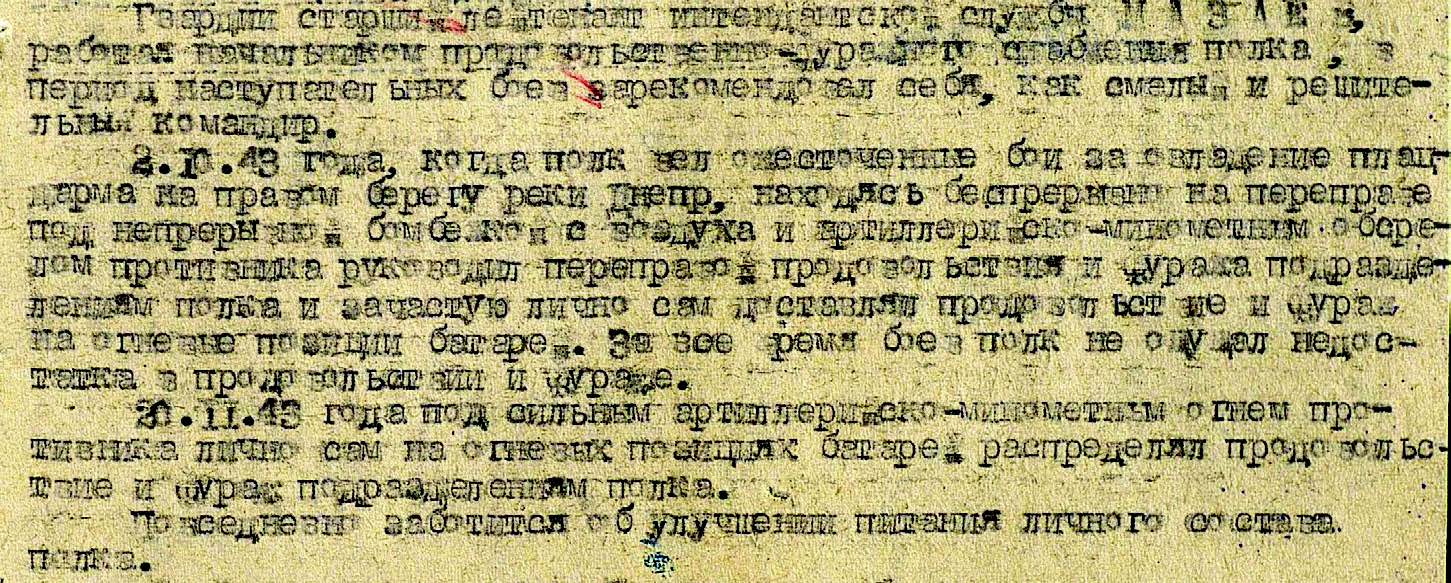 Гвардии старший лейтенант интендантской службы
работая начальником продовольственно-фуражного снабжения полка, в
период наступательных боев зарекомендовал себя, как смелый и решите-
льный командир.
2.10.43 года, когда полк вел ожесточенные бои за овладение плац-
дарма на правом берегу реки Днепр, находясь беспрерывно на переправе
под непрерывной бомбежкой с воздуха и артиллерийско-минометным обсре-
лом противника руководил переправой продовольствия и фуража подразде-
лениям полка и зачастую лично сам доставлял продовольствие и фураж
на огневые позиции батарей. За все время боев полк не ощущал недос-
татка в продовольствии и фураже.
года под сильным артиллерийско-минометным огнем про-
тивника лично сам на огневых позициях батарей распределял продовольс-
твие и фураж подразделениям полка.
Повседневно заботится об улучшении питания личного состава
полка.